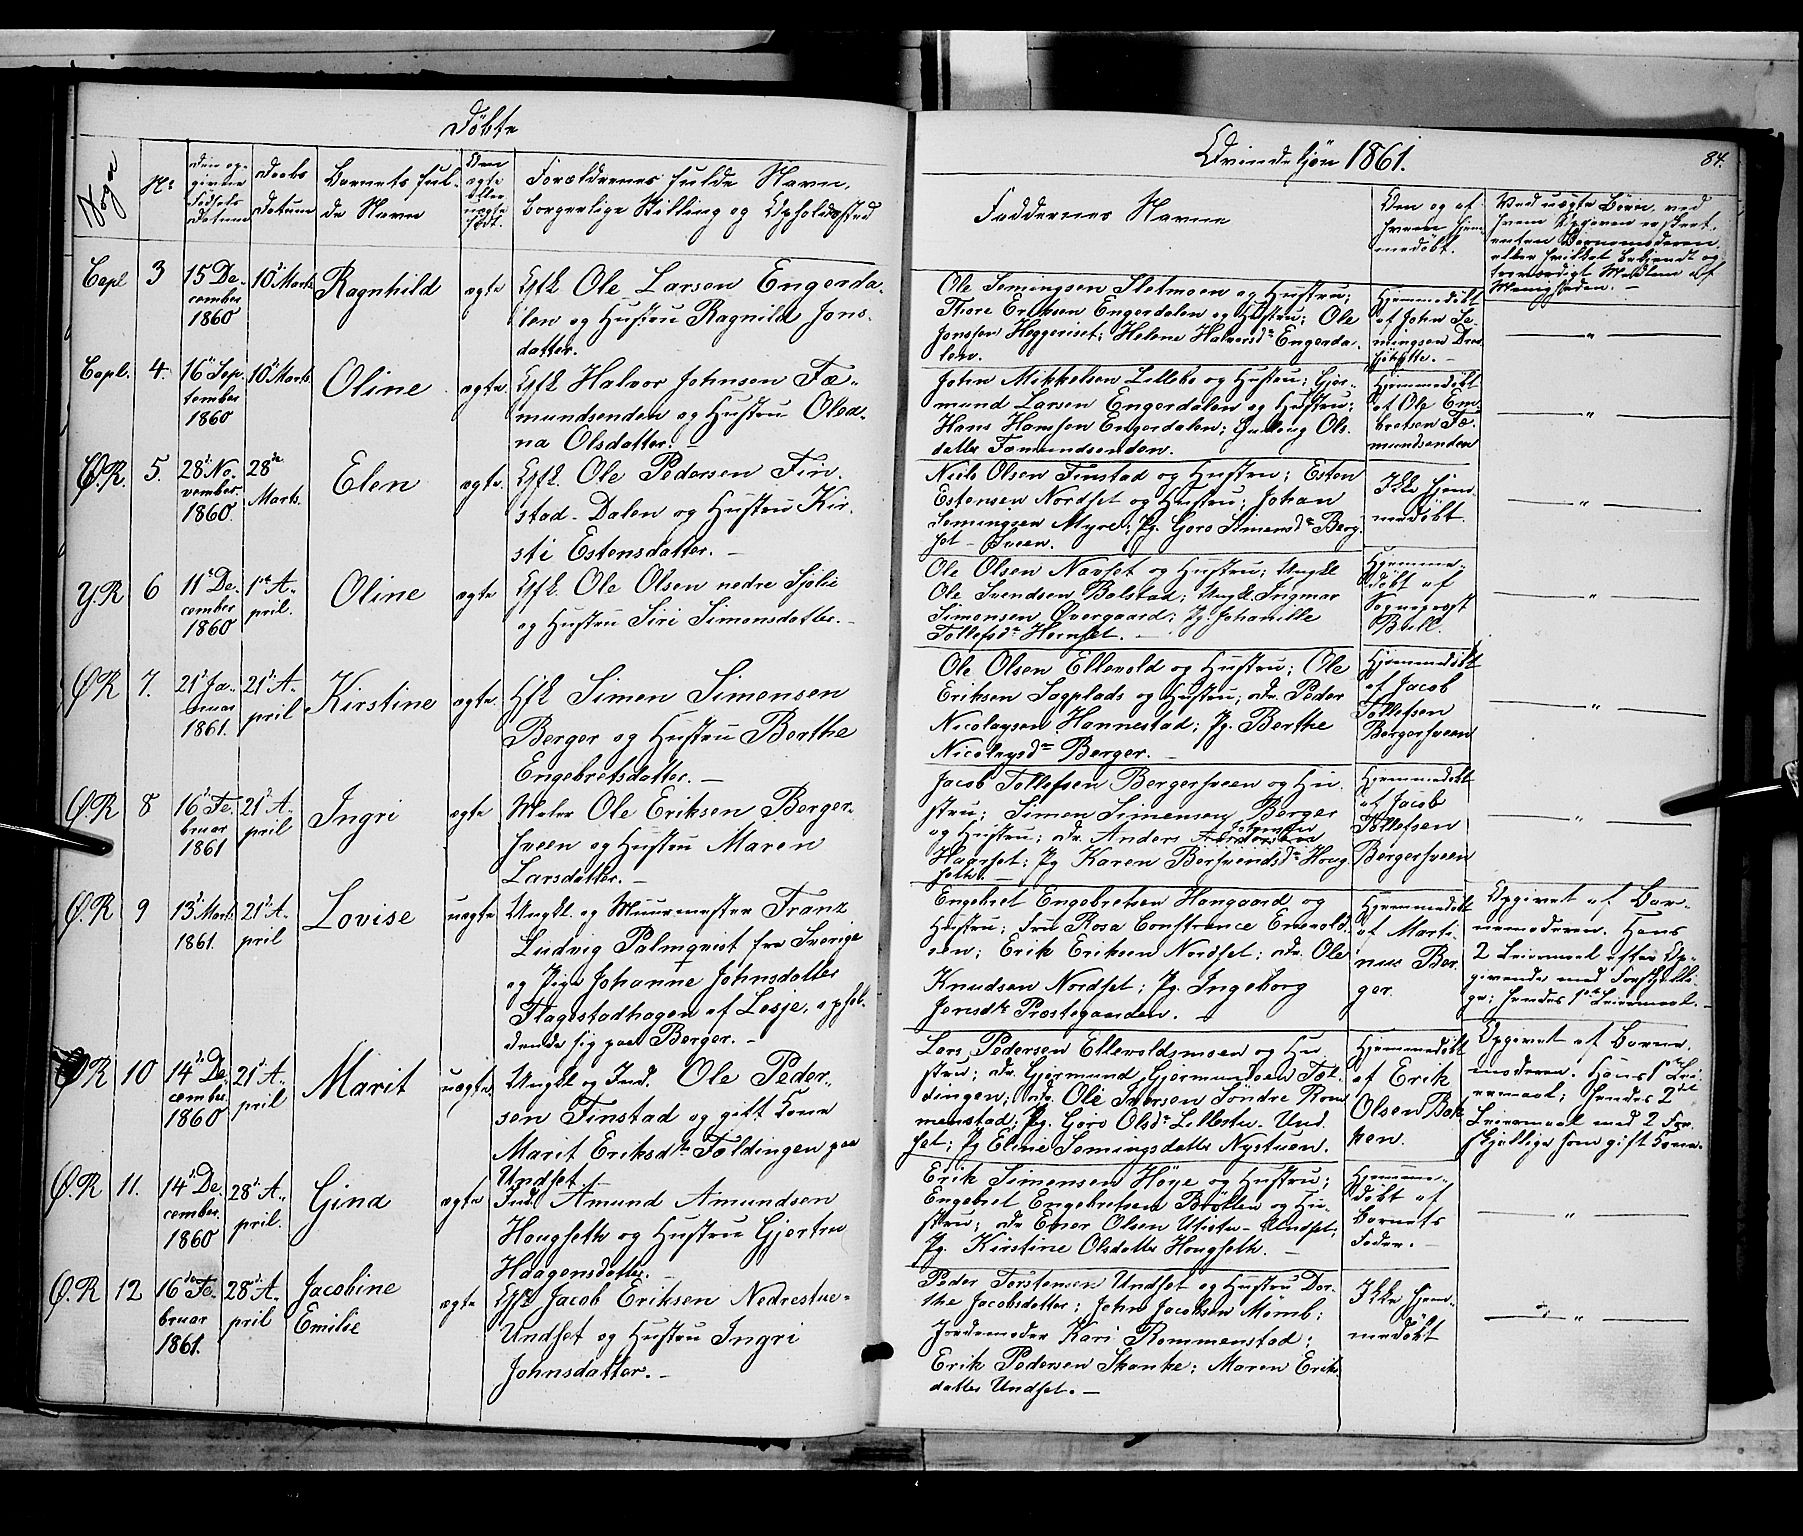 Döbte
Qvindekjön 1861.
84.
Sogn
No
Den op-
givne
Födsels
Datum
Daabs
Datum
Barnets ful-
de Navn
Om
ægte
eller
uægte
födt.
Forældrenes fulde Navn,
borgerlige Stilling og Opholdssted
Faddernes Navne
Om og af
hvem hjem-
medöbt.
Ved uægte Börn, ved
hvem Opgaven er skeet,
enten Barnemoderen
eller hvilket bekjendt og
troværdigt Medlem af
Menigheden. -
Capl 3
15 De-
cember
1860
10 Marts
Ragnhild
ægte
Gfk Ole Larsen Engerda-
len og Hustru Ragnild Jons-
datter.
Ole Semingsen Sletmoen og Hustru;
Thore Eriksen Engerdalen og Hustru; Ole
Jonssen Heggeriset; Helene Halvorsdr Engerda-
len.
Hjemmedöbt
af John Se-
mingsen Drev-
sjöhytte. -
"
Capl. 4.
16 Sep-
tember
1860
10 Marts
Oline
ægte
Gfk Halvor Johnsen Fæ-
mundsenden og Hustru Olea-
na Olsdatter. -
John Mikkelsen Lillebo og Hustru; Gjer-
mund Larsen Engerdalen og Hustru;
Hans Hansen Engerdalen; Gulling Ols-
datter Fæmundsenden.
Hjemmedöbt
af Ole Em-
bretsen Fæ-
mundsenden
"
Ø.R. 5.
28 No-
vember
1860.
28de
Marts.
Elen
ægte
Gfk. Ole Pedersen Fin-
stad-Dalen og Hustru Kir-
sti Estensdatter. -
Niels Olsen Finstad og Hustru; Esten
Estensen Nordset og Hustru; Johan
Semingsen Myre; Pg. Goro Simensdr Berg-
set-Sveen.
Ikke hjem-
medöbt.
"
Y.R 6
11 De-
cember
1860
1ste A-
pril.
Oline
ægte
Gfk. Ole Olsen nedre Sjölie
og Hustru Siri Simensdatter. -
Ole Olsen Navset og Hustru; Ungk
Ole Svendsen Bolstad; Ungk. Ingmar
Simensen Övergaard; Pg. Johanille
Tollefsdr Hernset. -
Hjemme-
döbt af
Sogneprest
Bull.
"
Ø.R 7.
21 Ja-
nuar
1861.
21 A-
pril
Kirstine
ægte
Gfk Simen Simensen
Berger og Hustru Berthe
Engebretsdatter. -
Ole Olsen Ellevold og Hustru; Ole
Eriksen Sagplads og Hustru; do. Peder
Nicolaysen Hannestad; Pg. Berthe
Nicolaysdr Berger. -
Hjemmedöbt
af Jacob
Tollefsen
Bergersveen
"
Ø.R 8
16 Fe-
bruar
1861
21 A-
pril
Ingri
ægte
Maler Ole Eriksen Berger-
sveen og Hustru Maren
Larsdatter. -
Jacob Tollefsen Bergersveen og Hu-
stru; Simen Simensen Berger
og Hustru; do. Anders
Haarset; Pg Karen Bersvendsdr Houg-
seth. -
Hjemmedöbt
af Jacob
Tollefsen
Bergersveen
"
Ø.R 9
13 Marts
1861.
21 A-
pril
Lovise
uægte
Ungkl. og Muurmester Franz
Ludvig Palmqvist fra Sverige
og Pige Johanne Johnsdatter
Flagestadhagen af Lesje, ophol-
dende sig paa Berger. -
Engebret Engebretsen Hangaard og
Hustru; Fru Rosa Constance Enevold-
sen; Erik Eriksen Nordset; do. Ole
Knudsen Nordset; Pg. Ingeborg
Jensdtr Præstegaarden. -
Hjemmedöbt
af Marti-
nus Ber-
ger.
Opgivet af Bar-
nemoderen. Hans
2 Leiermaal efter Op-
givende med Forskjelli-
ge; hendes 1ste Leiermaal. -
Ø.R 10
14 De-
cember
1860
21 A-
pril
Marit
uægte
Ungkl og Ind. Ole Peder-
sen Finstad og gift Kone
Marit Eriksdtr Foldingen paa
Undset.
Lars Pedersen Ellevoldsmoen og Hu-
stru; do. Gjermund Gjermundsen Fol-
dingen; do. Ole Iversen Söndre Rom-
menstad; Pg. Goro Olsdr Lillestu-Und-
set; Pg Eline Semingsdatter Nystuen.
Hjemmedöbt
af Erik
Olsen Bak-
ken.
Opgivet af Barne-
moderen. Hans 1ste Lei-
ermaal; hendes 2det
Leiermaal med 2 For-
skjellige som gift Kone.
Ø.R 11.
14 De-
cember
1860
28 A-
pril.
Gina
ægte
Ind. Amund Amundsen
Hougseth og Hustru Gjertru
Haagensdatter.
Erik Simensen Höye og Hustru;
Engebret Engebretsen Bröllen og Hu-
stru; do Ener Olsen Utistu-Undset;
Pg. Kirstine Olsdatter Hougseth. -
Hjemme-
döbt af
Barnets
Fader. -
"
Ø.R 12
16de Fe-
bruar
1861.
28 A-
pril
Jacobine
Emilie
ægte
Gfk Jacob Eriksen Nedrestue-
Undset og Hustru Ingri
Johnsdatter. -
Peder Torstensen Undset og Hustru Dor-
the Jacobsdatter; John Jacobsen Momb;
Jordemoder Kari Rommenstad;
Erik Pedersen Skanke; Maren Eriks-
datter Undset. -
Ikke hjem-
medöbt
"